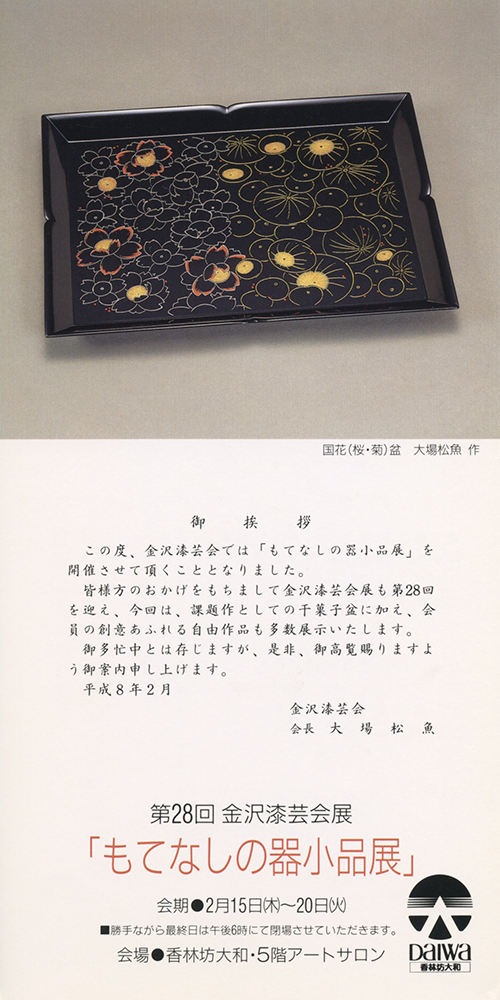 国花(桜・菊)盆　大場松魚 作
御　挨　拶
この度、金沢漆芸会では「もてなしの器小品展」を
開催させて頂くこととなりました。
皆様方のおかげをもちまして金沢漆芸会展も第28回
を迎え、今回は、課題作としての干菓子盆に加え、会
員の創意あふれる自由作品も多数展示いたします。
御多忙中とは存じますが、是非、御高覧賜りますよ
う御案内申し上げます。
平成8年2月
金沢漆芸会
会長　大　場　松　魚
第28回 金沢漆芸会展
「もてなしの器小品展」
会期●2月15日(木)〜20日(火)
■勝手ながら最終日は午後6時にて閉場させていただきます。
会場●香林坊大和・5階アートサロン
DAIWA
香林坊大和